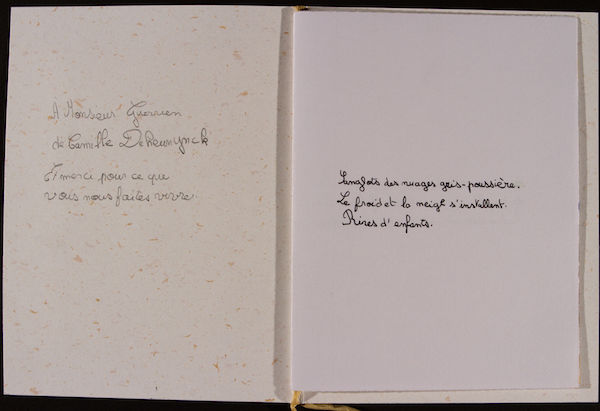 A Monsieur Guerrien
de Camille Deheunynck
Et merci pour ce que
vous nous faites vivre.
Sanglots des nuages gris-poussière.
Le froid et la neige s'installent.
Rires d'enfants.